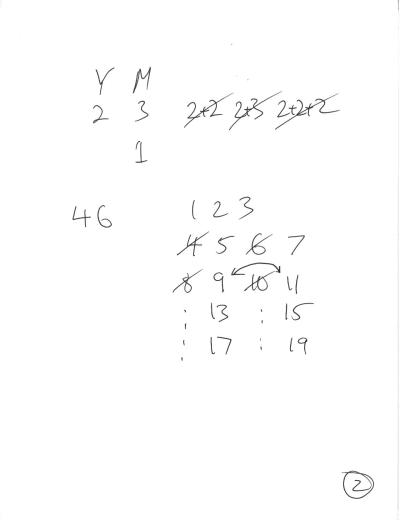 Y M
2 3 2+2 2+3 2+2+2
1
46 1 2 3
4 5 6 7
8 9 10 11
: 13 : 15
: 17 : 19
2